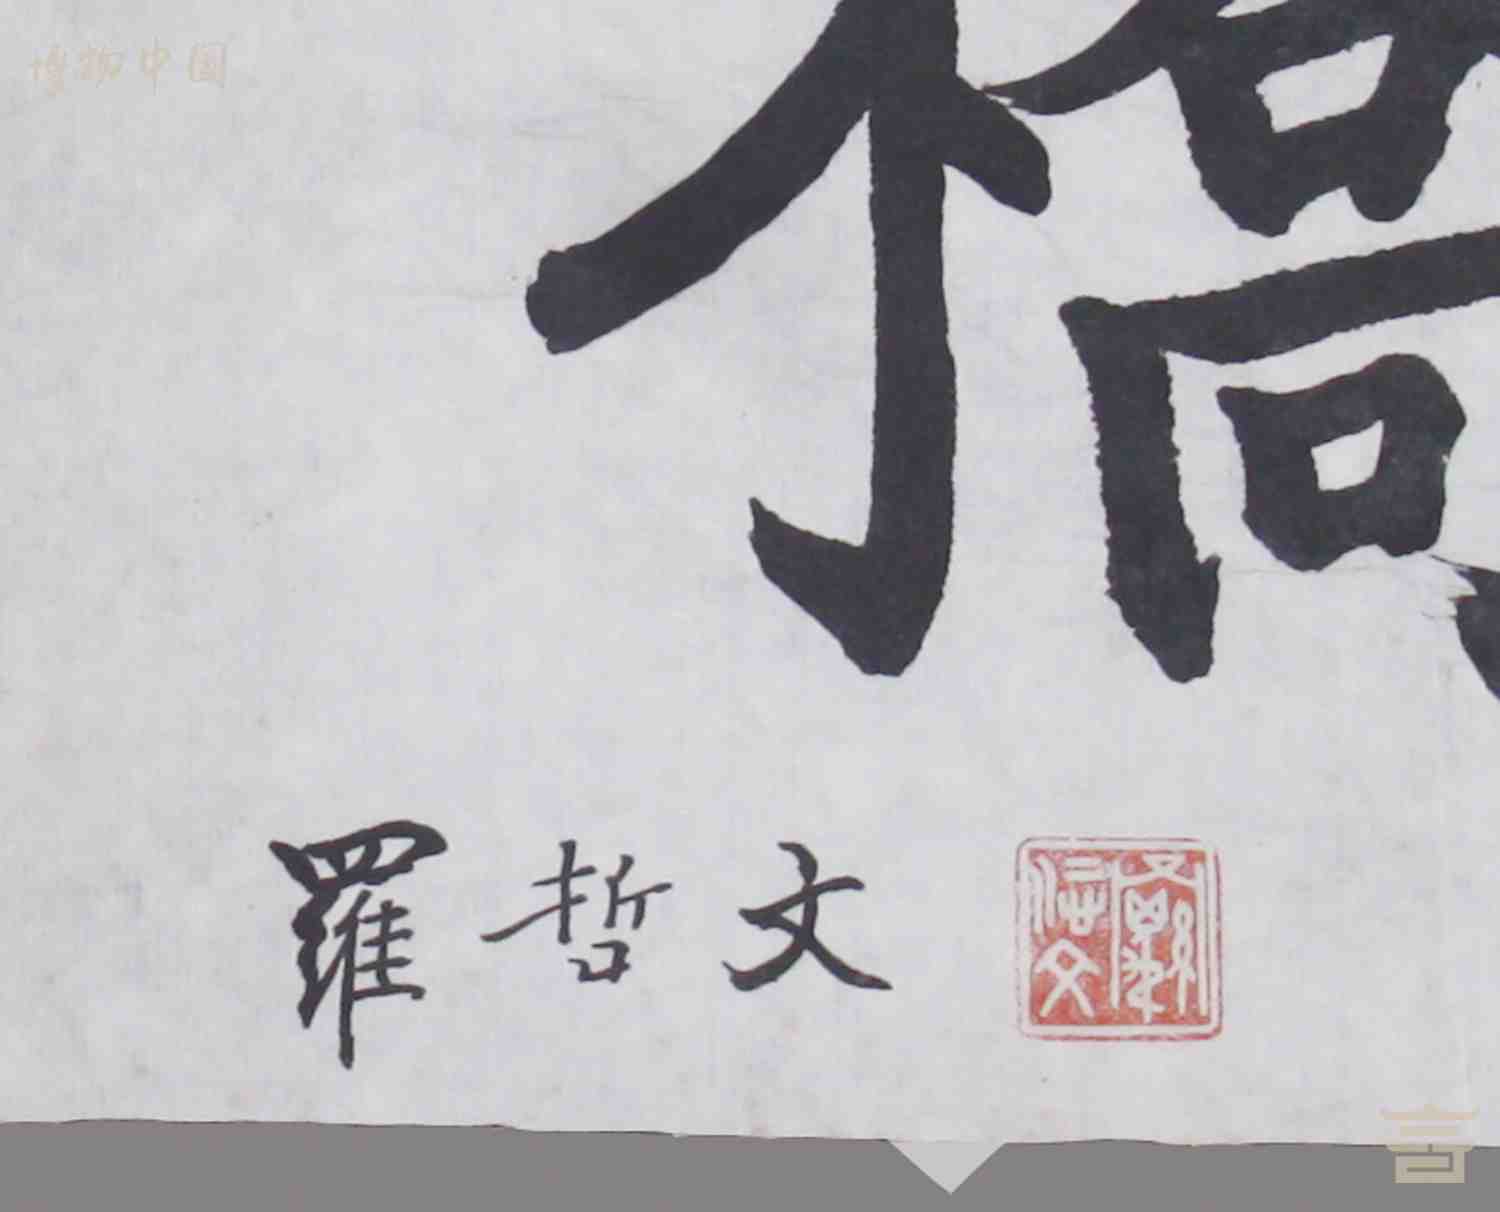 博物中国
橋
羅哲文